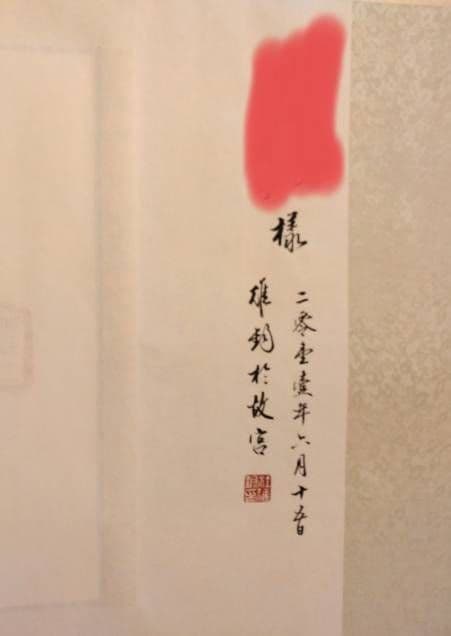 様
二零壹壹年六月十五日
雄鈞於故宮